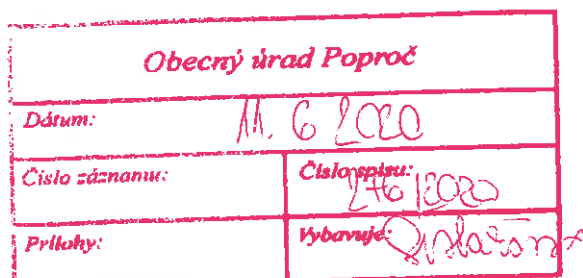 Obecný úrad Poproč
Dátum: 11. 6 2020
Číslo záznamu:
Číslo spisu: 276/2020
Prílohy:
Vybavuje: